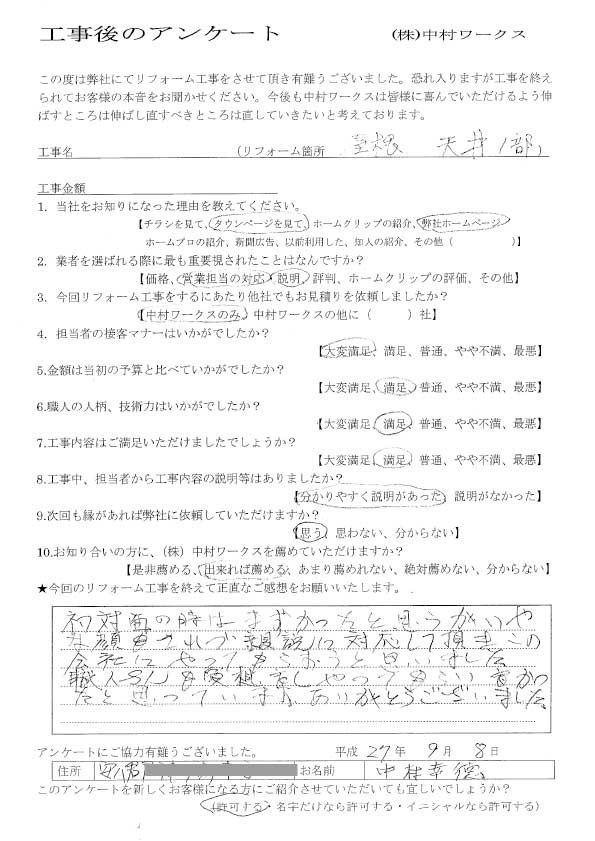 工事後のアンケート (株)中村ワークス
この度は弊社にてリフォーム工事をさせて頂き有難うございました。恐れ入りますが工事を終え
られてお客様の本音をお聞かせください。今後も中村ワークスは皆様に喜んでいただけるよう伸
ばすところは伸ばし直すべきところは直していきたいと考えております。
工事名 (リフォーム箇所 屋根 天井1部)
工事金額
1. 当社をお知りになった理由を教えてください。
【チラシを見て、タウンページを見て、ホームクリップの紹介、弊社ホームページ
ホームプロの紹介、新聞広告、以前利用した、知人の紹介、その他( )】
2. 業者を選ばれる際に最も重要視されたことはなんですか?
【価格、営業担当の対応・説明、評判、ホームクリップの評価、その他】
3. 今回リフォーム工事をするにあたり他社でもお見積りを依頼しましたか?
【中村ワークスのみ、中村ワークスの他に( )社】
4. 担当者の接客マナーはいかがでしたか?
【大変満足、満足、普通、やや不満、最悪】
5.金額は当初の予算と比べていかがでしたか?
【大変満足、満足、普通、やや不満、最悪】
6.職人の人柄、技術力はいかがでしたか?
【大変満足、満足、普通、やや不満、最悪】
7.工事内容はご満足いただけましたでしょうか?
【大変満足、満足、普通、やや不満、最悪】
8.工事中、担当者から工事内容の説明等はありましたか?
【分かりやすく説明があった、説明がなかった】
9.次回も縁があれば弊社に依頼していただけますか?
【思う、思わない、分からない】
10.お知り合いの方に、(株)中村ワークスを薦めていただけますか?
【是非薦める、出来れば薦める、あまり薦めれない、絶対薦めない、分からない】
★今回のリフォーム工事を終えて正直なご感想をお願いいたします。
初対面の時はまずかったと思うがいや
な顔もされづ親説に対応して頂きこの
会社にやってもらおうと思いました
職人さんも愛想をしやってもらい良かっ
たと思っています。ありがとうございました。
アンケートにご協力有難うございました。 平成 27年 9月 8日
住所 お名前 中村幸徳
このアンケートを新しくお客様になる方にご紹介させていただいても宜しいでしょうか?
(許可する・名字だけなら許可する・イニシャルなら許可する)